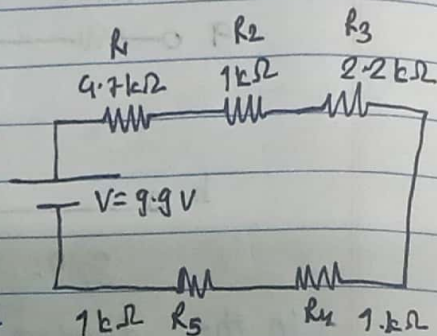 R1 R2 R3
4.7kΩ 1kΩ 2.2kΩ
V= 9.9 V
1kΩ R5 R4 1.kΩ